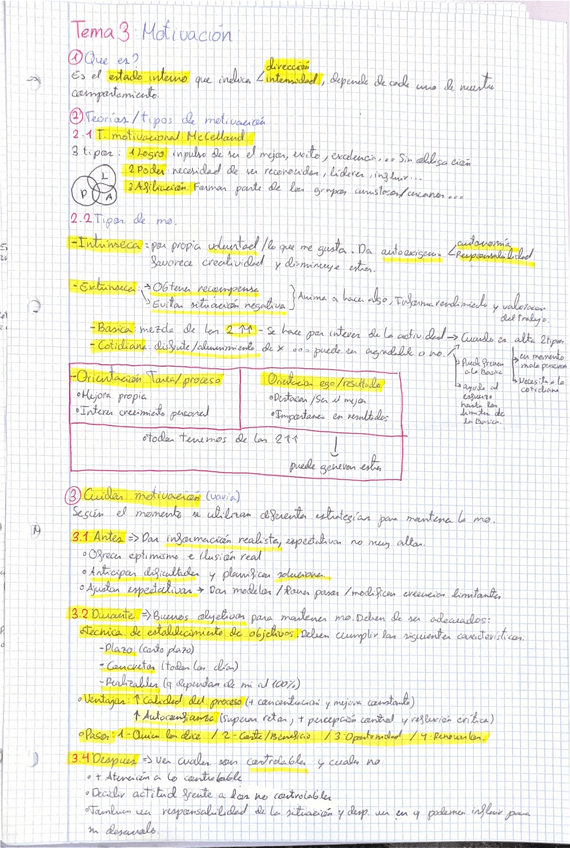 Tema 3 Motivación
① Que es?
Es el estado interno que indica < dirección
intensidad, depende de cada uno de nuestro
comportamiento.
② Teorías/tipos de motivación
2.1 T. motivacional McClelland
3 tipos: 1 Logro impulso de ser el mejor, exito, excelencia... Sin obligación
2 Poder necesidad de ser reconocidos, líderes, influir...
3 Afiliación. Formar parte de los grupos
L
P A
2.2 Tipos de mo.
-Intrínseca = por propia voluntad/lo que me gusta. Da autoexigen. < autonomía
Responsabilidad
favorece creatividad y disminuye estres.
-Extrínseca → Obtener recompensa
→ Evitar situación negativa } Anima a hacer algo, rendimiento y valoración
del trabajo.
-Basica mezcla de las 2 ↑↑ - Se hace por interes de la actividad → Cuando es alta 2 tipos
-Cotidiana disfrute/aburrimiento de x puede ser agradable o no.
→ Puede frenar
a la basica
→ ayuda al
esfuerzo
hasta los
limites de
la Basica.
→ en momento
malo
→ Necesita a la
cotidiana
-Orientación Tarea/proceso
•Mejora propia
•Interes crecimiento personal
Orientación ego/resultado
•Destacar/Ser el mejor
•Importancia en resultados
•todos tenemos de las 2 ↑↑
↓
puede generar estres
③ Cuidar motivación (varia)
Según el momento se utilizan diferentes estrategias para mantener la mo.
3.1 Antes => Dar información realista, expectativas no muy altas.
•Ofrecer optimismo e ilusión real
•Anticipar dificultades y planificar soluciones
•Ajustar expectativas → Dar modelos/Poner pasos/modificar creencias limitantes
3.2 Durante => Buenos objetivos para mantener mo. Deben de ser adecuados:
•técnica de establecimiento de objetivos. Deben cumplir las siguientes características.
-Plazo (corto plazo)
-Concretos (todos los días)
-Realizables (q dependan de mi al 100%)
•Ventajas: ↑ Calidad del proceso (+ concentración y mejora constante)
↑ Autoconfianza (superar retos, + percepción control y reflexión critica)
•Pasos: 1- Quien los dice / 2- Coste/Beneficio / 3 Oportunidad / 4-
3.4 Despues => ver cuales son controlables y cuales no
• + Atención a lo controlable
•Decidir actitud frente a los no controlables
•Tambien ver responsabilidad de la situación y desp. ver en q podemos influir para
su desarrollo.